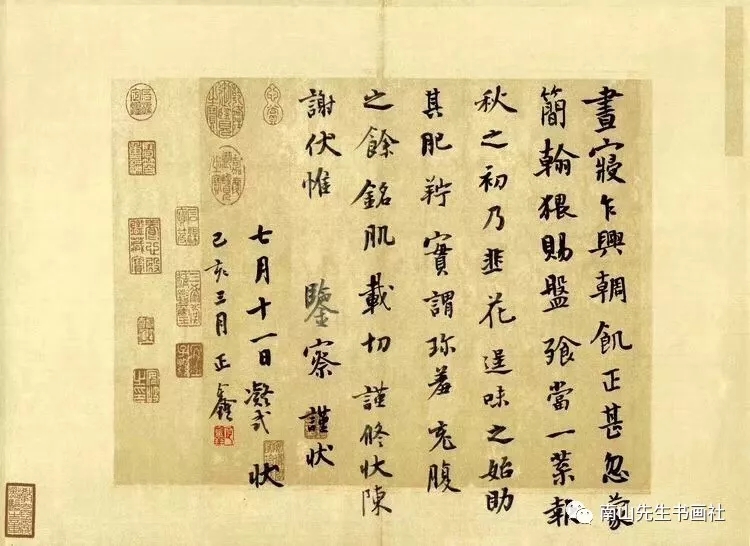 晝寢乍興輖飢正甚忽蒙
簡翰猥賜盤飱當一葉報
秋之初乃韭花逞味之始助
其肥羜實謂珍羞充腹
之餘銘肌載切謹修狀陳
謝伏惟
鑒察謹狀
七月十一日凝式狀
己亥三月正鑫
南山先生书画社